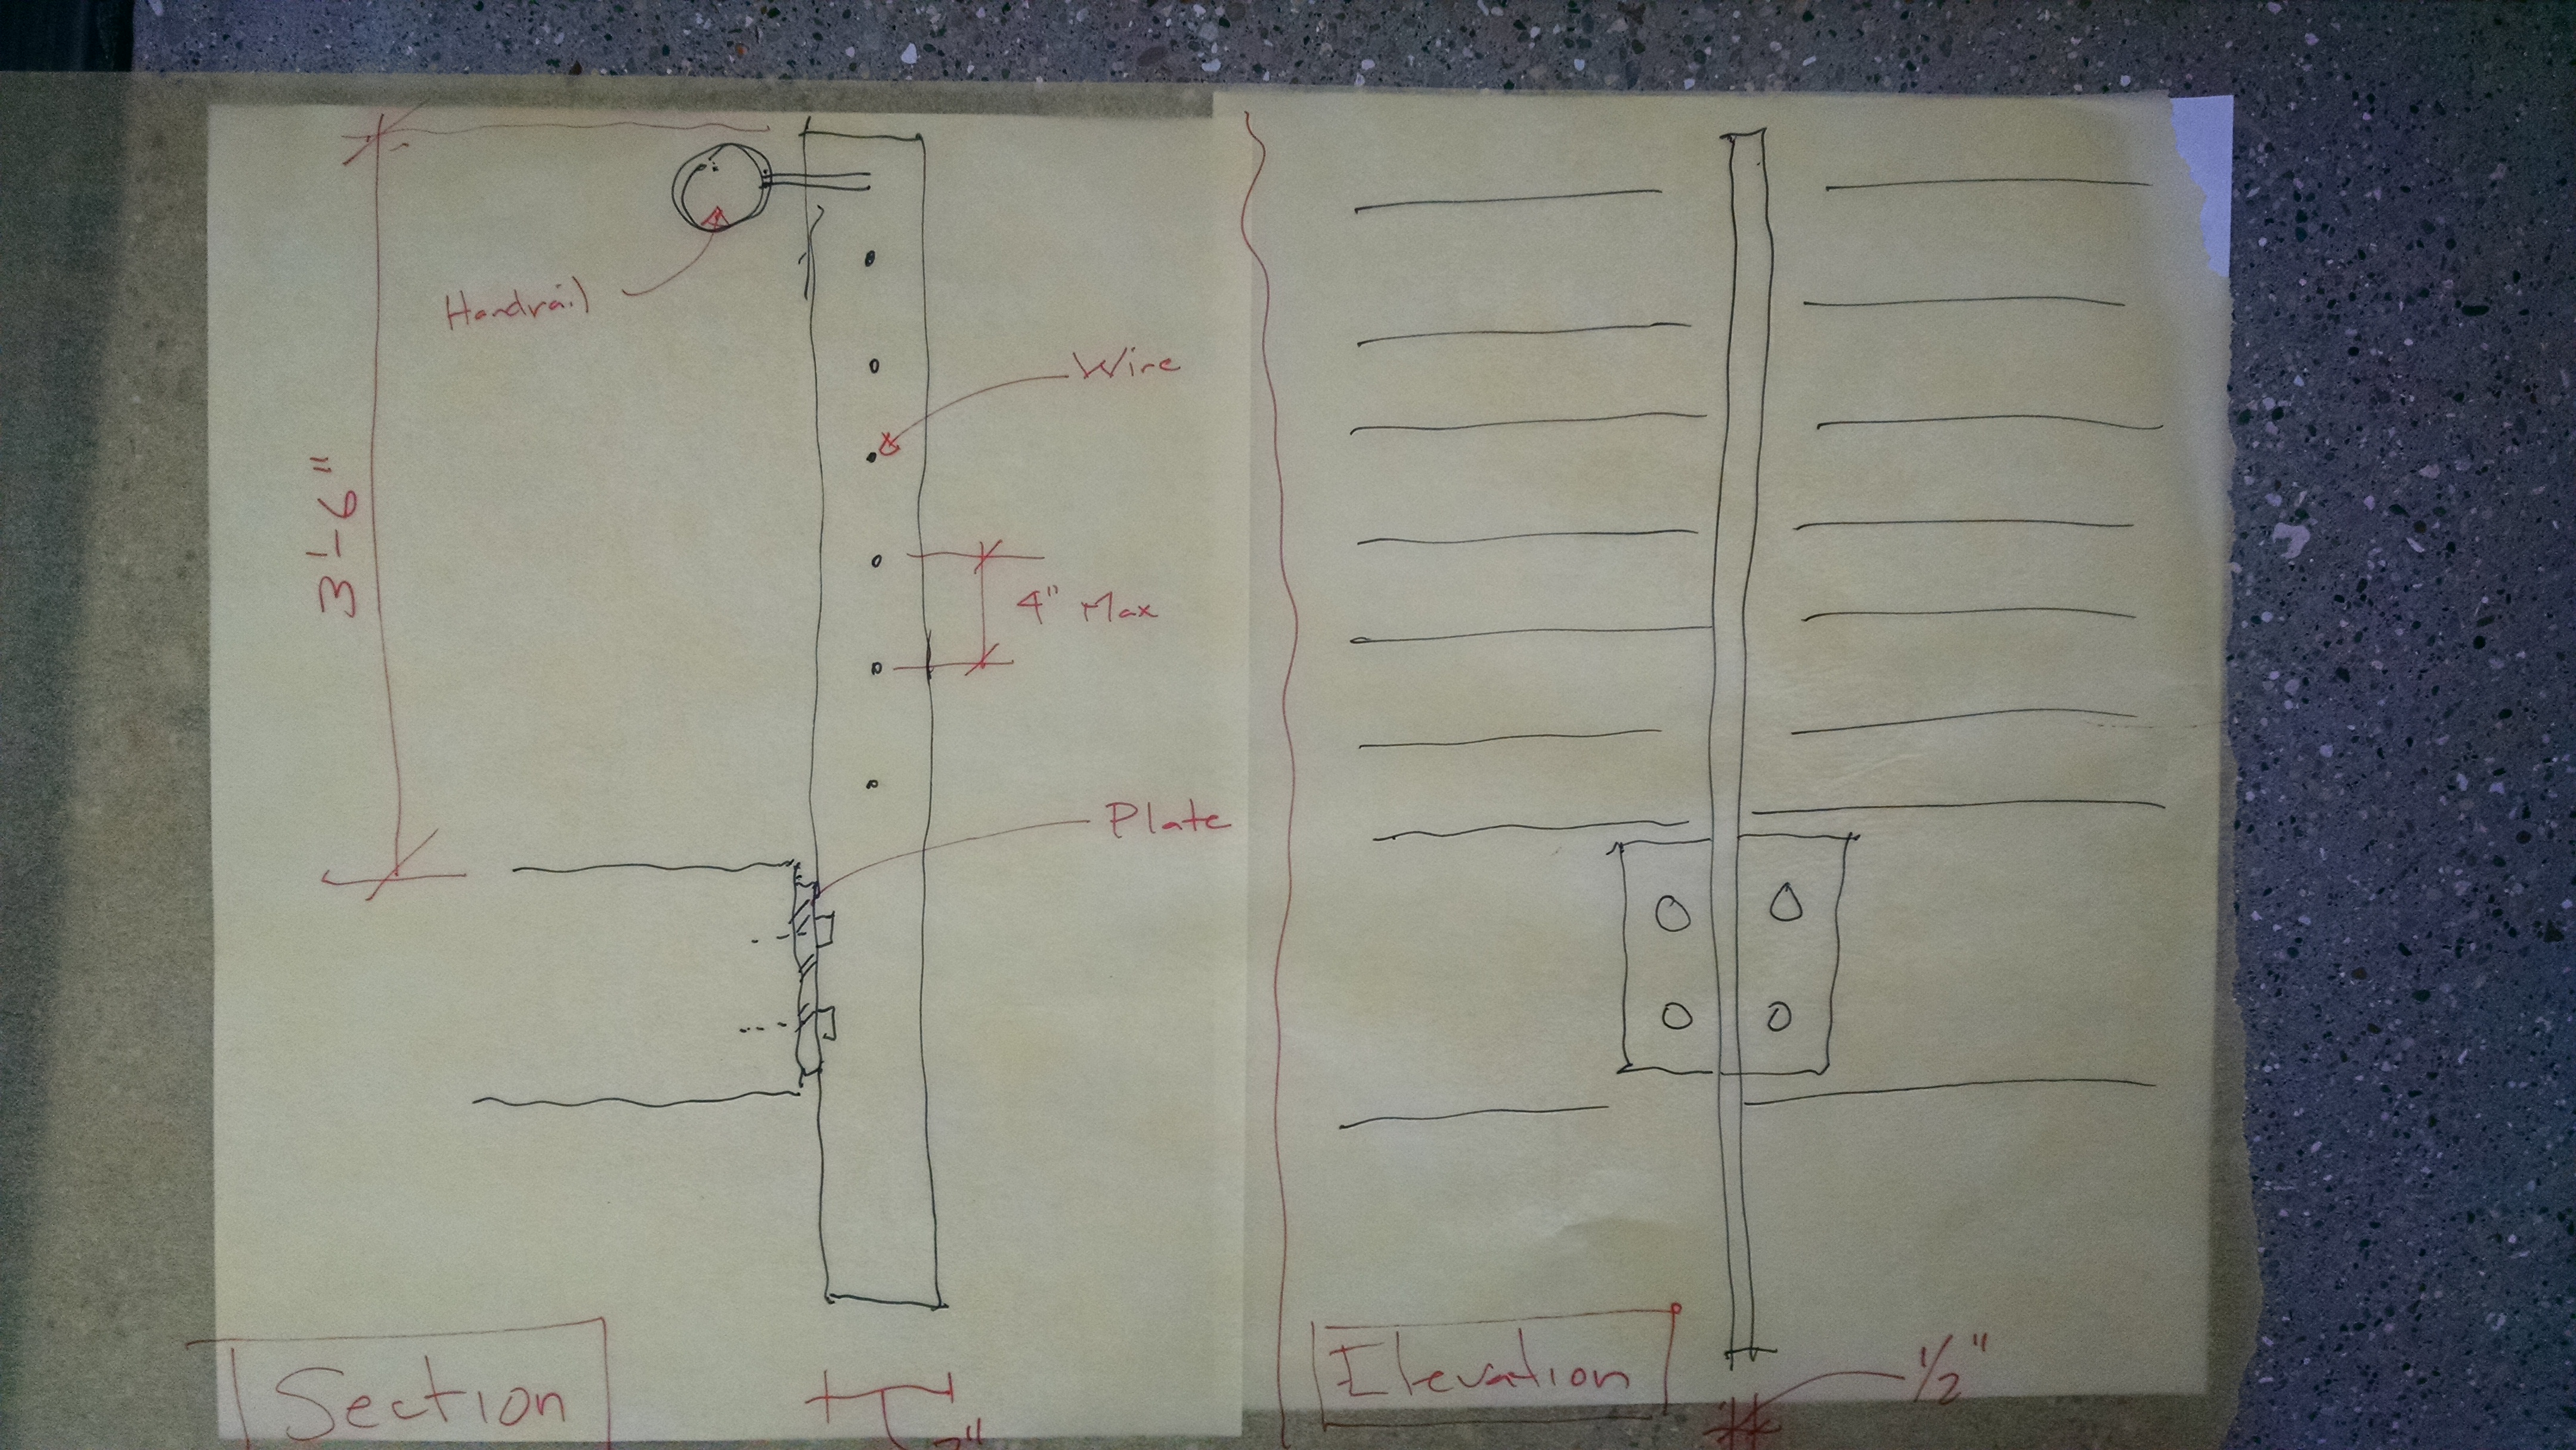 Handrail
Wire
3'-6"
4" Max
Plate
Section
Elevation
1/2"